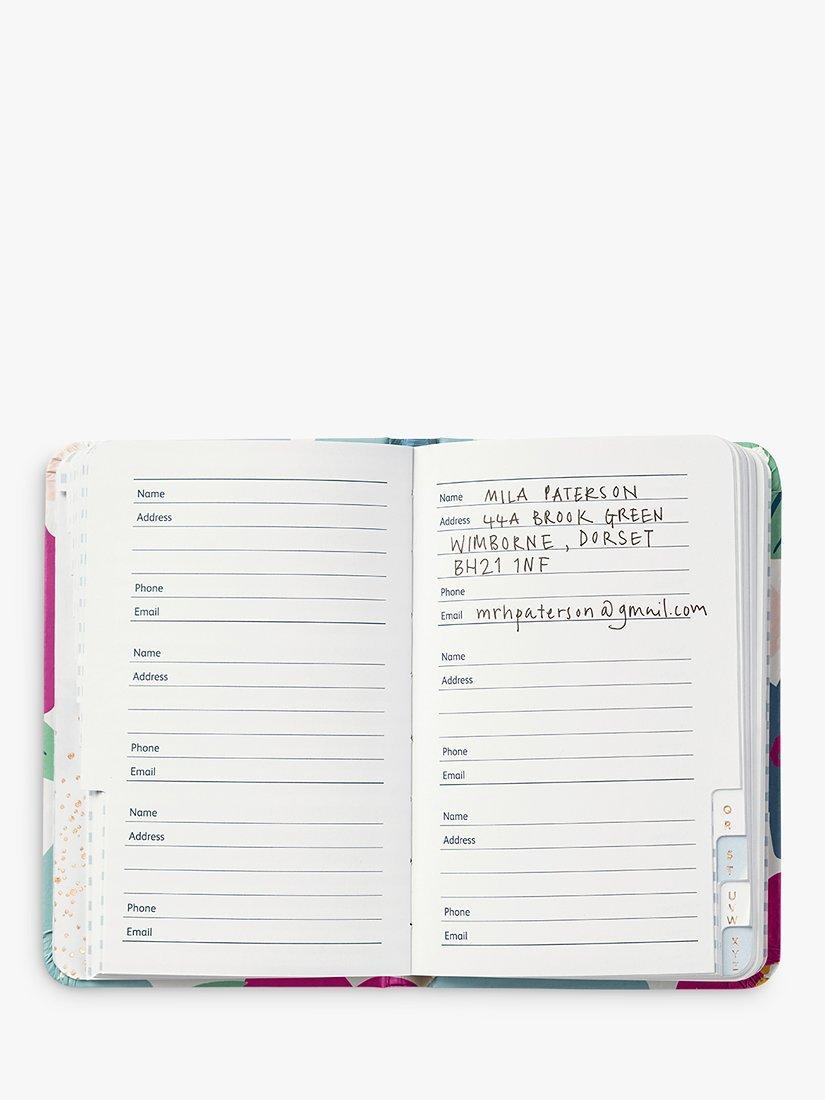 Name
Address
Phone
Email
Name
Address
Phone
Email
Name
Address
Phone
Email
Name MILA PATERSON
Address 44A BROOK GREEN
WIMBORNE, DORSET
BH21 1NF
Phone
Email mrhpaterson@gmail.com
Name
Address
Phone
Email
Name
Address
Phone
Email
O
R
S
T
U
V
W
X
Y
Z